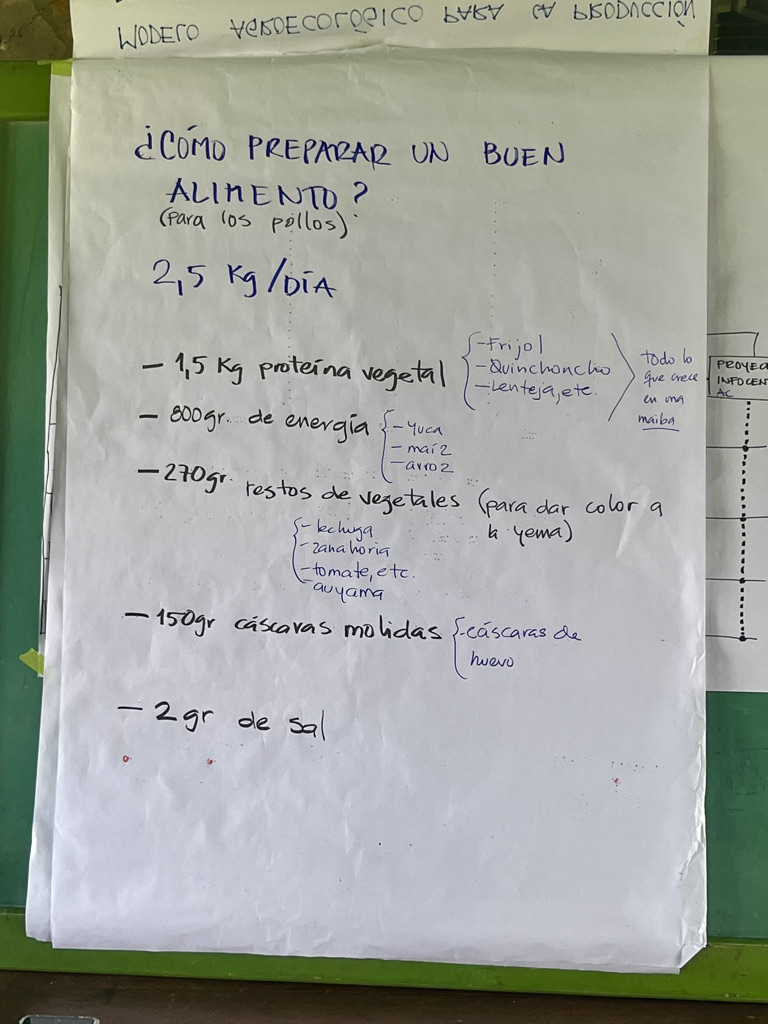 MODELO AGROECOLÓGICO PARA LA PRODUCCIÓN
¿CÓMO PREPARAR UN BUEN
ALIMENTO?
(para los pollos)
2,5 Kg/DÍA
- 1,5 Kg proteína vegetal
- Frijol
- Quinchoncho
- Lenteja, etc.
todo lo
que crece
en una
maiba
- 800gr. de energía
- yuca
- maíz
- arroz
- 270gr. restos de vegetales (para dar color a
la yema)
- lechuga
- zanahoria
- tomate, etc.
- auyama
- 150gr cáscaras molidas
- cáscaras de
huevo
- 2 gr de sal
PROYEC
INFOCEN
AC